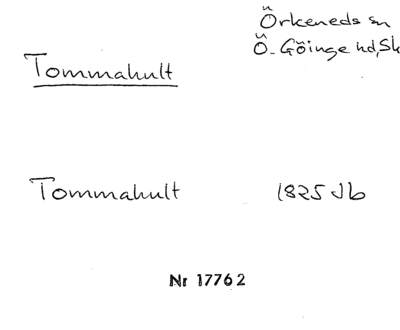 Örkeneds sn
Ö. Göinge hd, Sk
Tommahult
Tommahult 1825 Jb
Nr 17762